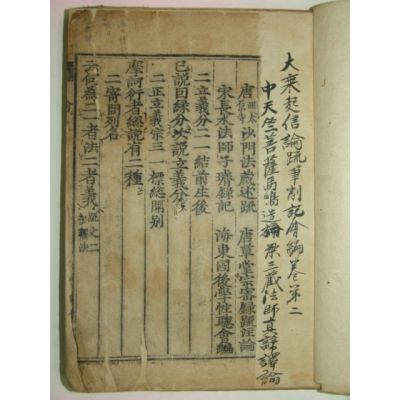 大乘起信論疏筆削記會編卷第二
中天竺菩薩馬鳴造論 梁三藏法師真諦譯論
唐西太原寺沙門法藏述疏 唐草堂宗密錄疏注論
宋長水法師子璿錄記 海東國後學性聰會編
二立義分二一結前生後
已說因緣分次說立義分
二正立義宗三一標總開別
摩訶衍者總說有二種
二寄問列名
云何為二一者法二者義